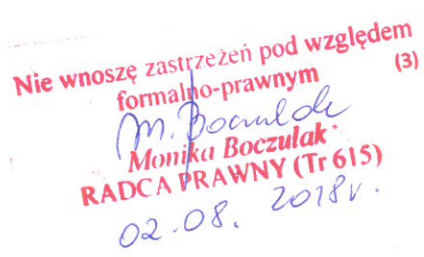 Nie wnoszę zastrzeżeń pod względem
formalno-prawnym (3)
M. Boczulak
Monika Boczulak
RADCA PRAWNY (Tr 615)
02.08. 2018r.